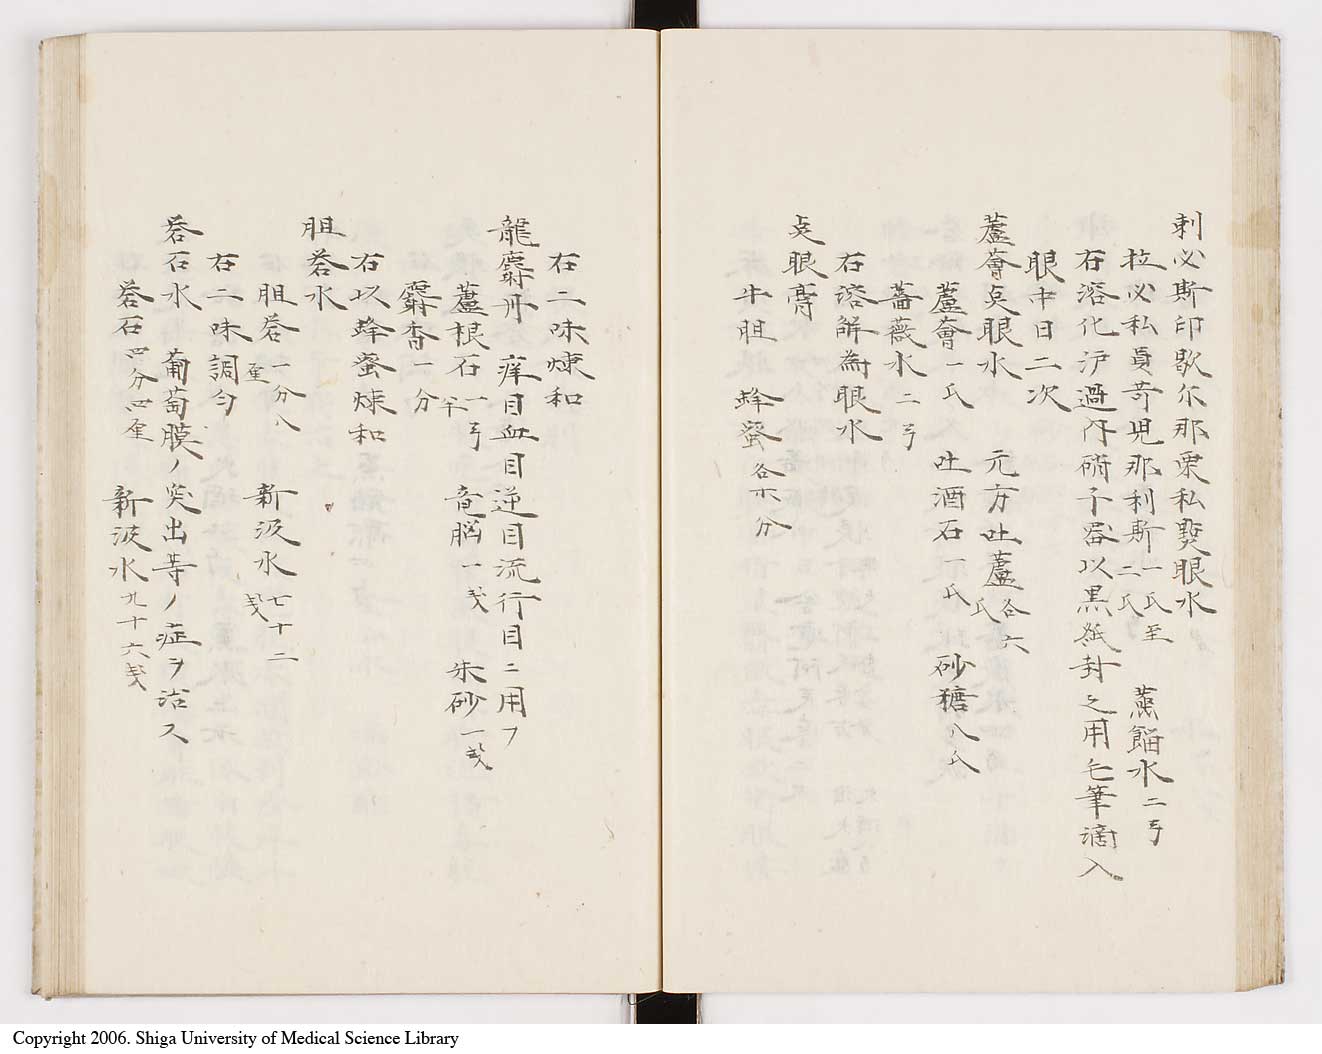 刺必斯印歇尓那衆私煚眼水
拉必私員苛児那利斯一氏至二氏 蒸餾水二弓
右溶化沪過シ硝子器以黒紙封之用毛筆滴入
眼中日二次
蘆薈点眼水 元方吐蘆各六氏
蘆薈一氏 吐酒石一氏 砂糖八氏
薔薇水二弓
右溶解為眼水
点眼膏
牛胆 蜂蜜各六分
右二味煉和
龍麝丹 痒目血目逆目流行目ニ用フ
蘆根石一弓半 竜脳一戔 朱砂一戔
麝香一分
右以蜂蜜煉和
胆礬水
胆礬一分八厘 新汲水七十二戔
右二味調匀
礬石水 葡萄膜ノ突出等ノ症ヲ治ス
礬石四分四厘 新汲水九十六戔
Copyright 2006. Shiga University of Medical Science Library